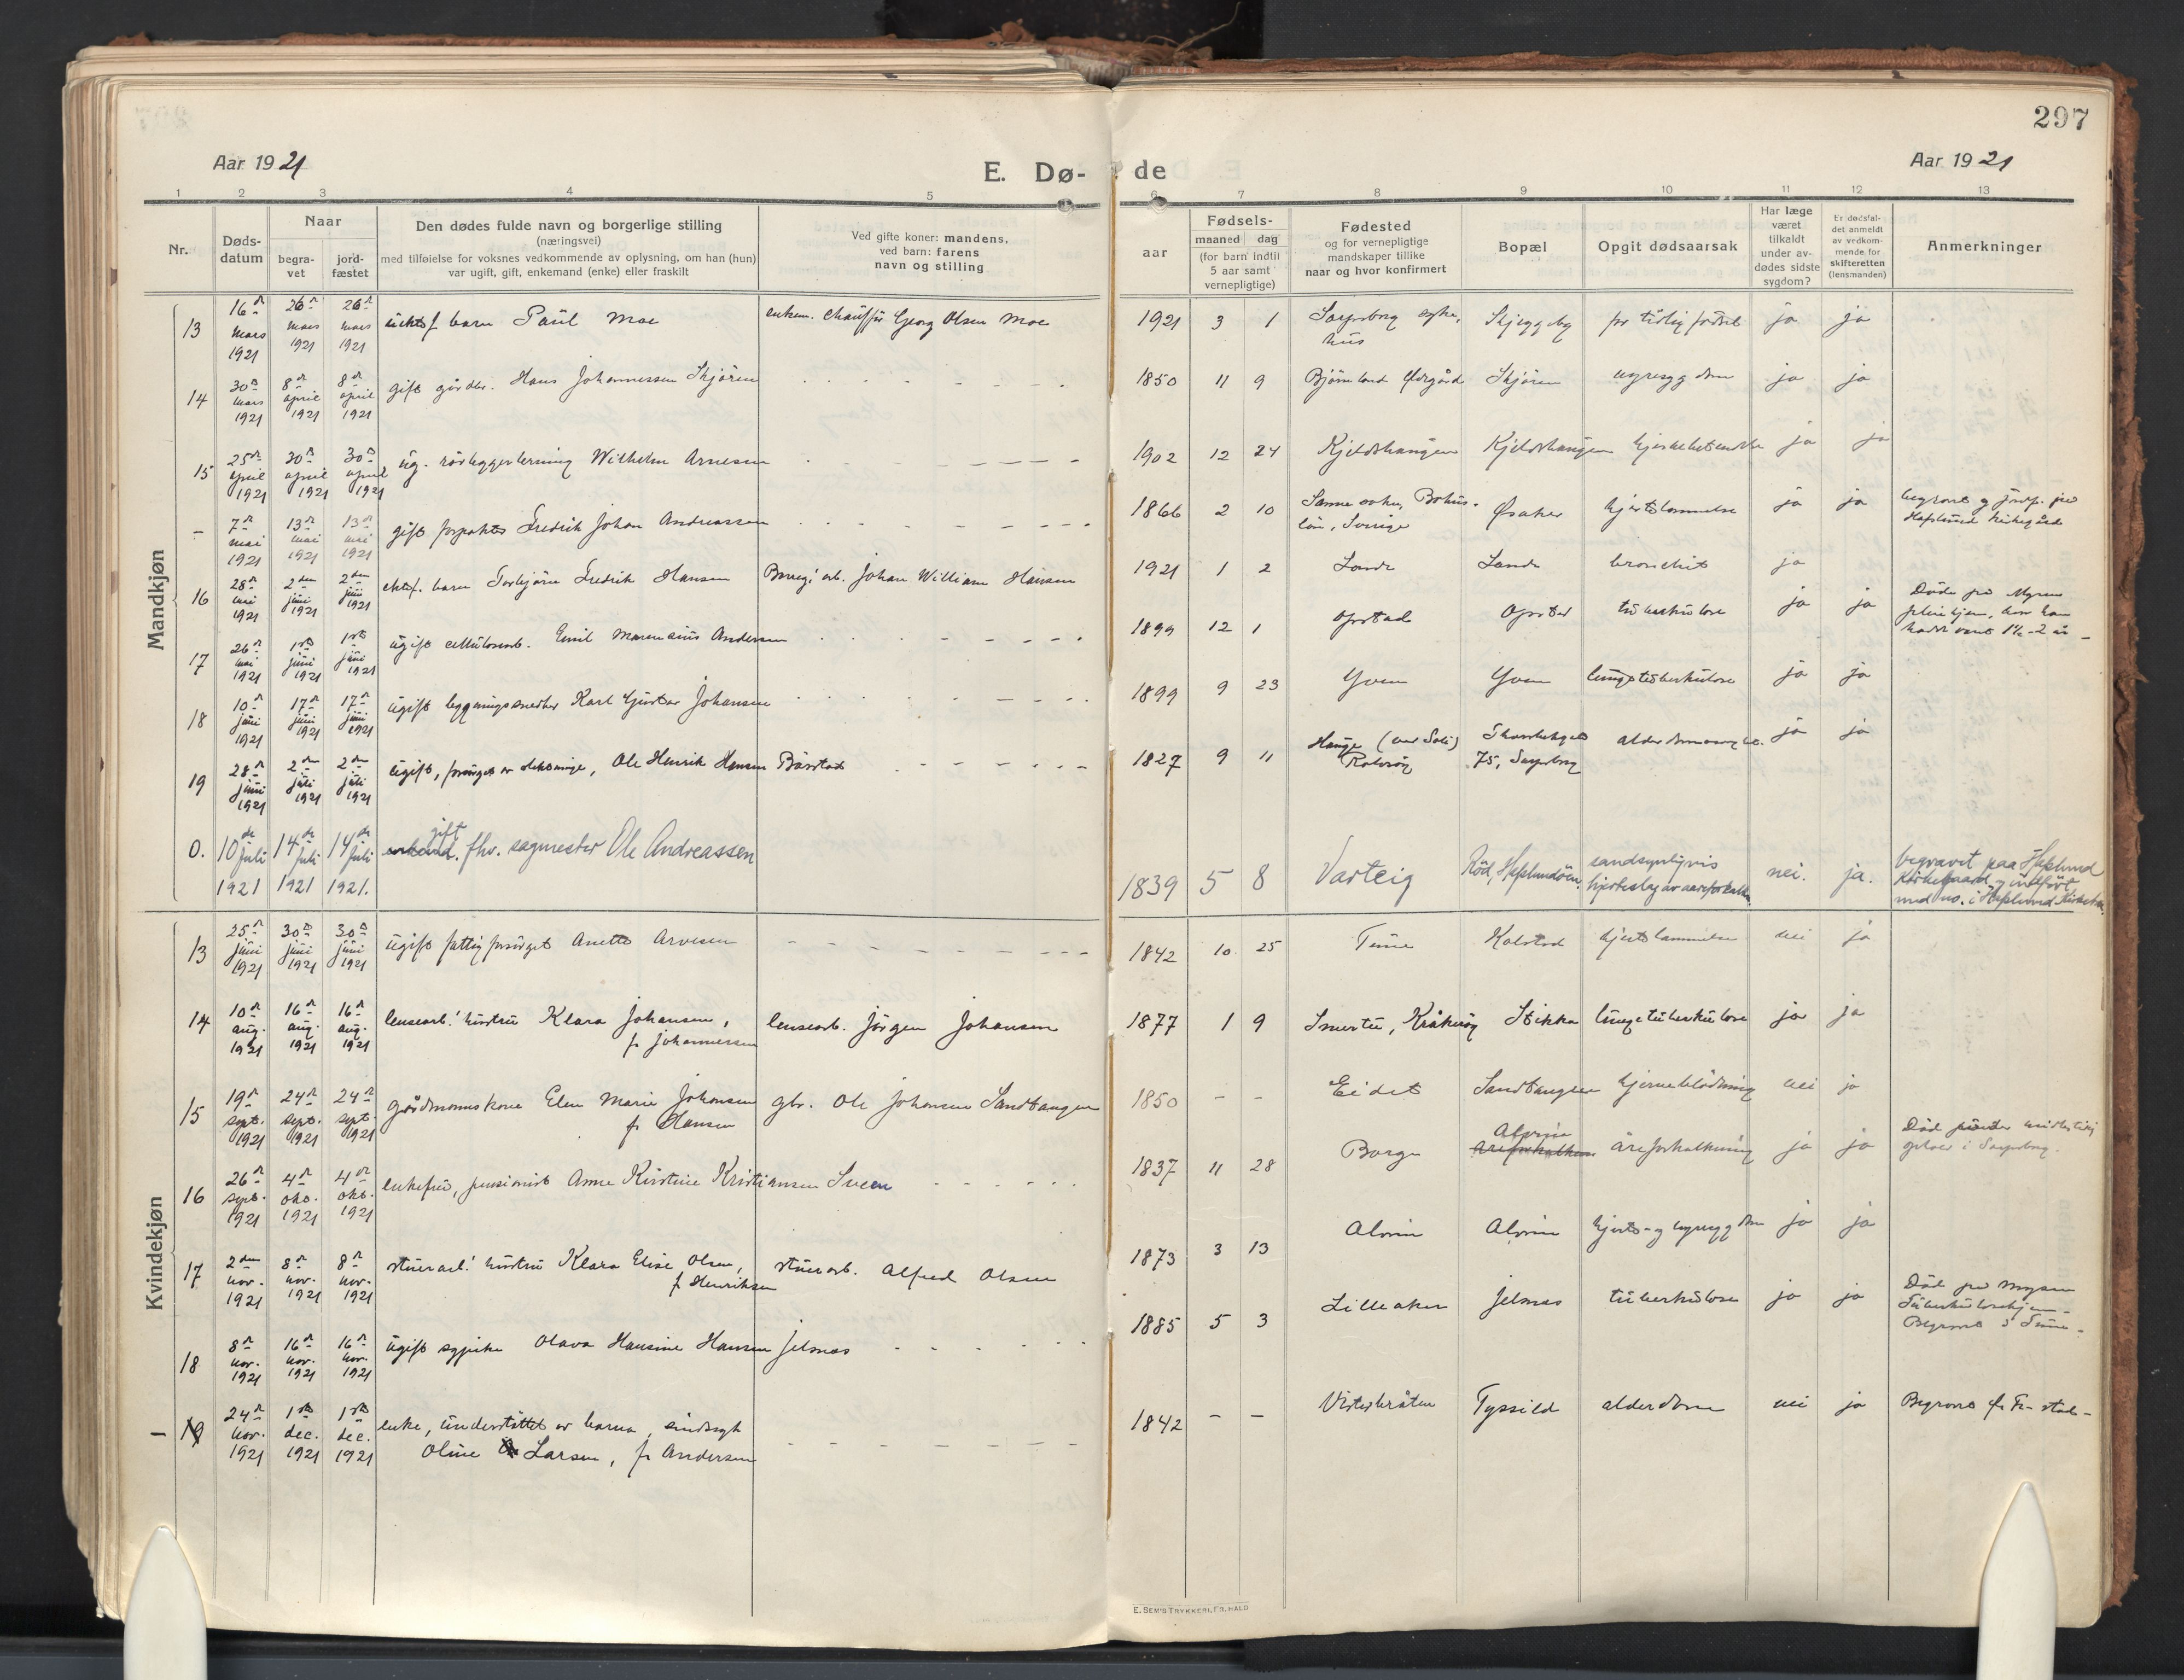 297
Aar 1921
E. Dø-
de
Aar 1921
1 2 3 4 5 6 7 8 9 10 11 12 13
Nr.
Døds-
datum
Naar
begra-
vet
jord-
fæstet
Den dødes fulde navn og borgerlige stilling
(næringsvei)
med tilføielse for voksnes vedkommende av oplysning, om han (hun)
var ugift, gift, enkemand (enke) eller fraskilt
Ved gifte koner: mandens,
ved barn: farens
navn og stilling
aar
Fødsels-
maaned dag
(for barn indtil
5 aar samt
vernepligtige)
Fødested
og for vernepligtige
mandskaper tillike
naar og hvor konfirmert
Bopæl
Opgit dødsaarsak
Har læge
været
tilkaldt
under av-
dødes sidste
sygdom?
Er dødsfal-
det anmeldt
av vedkom-
mende for
skifteretten
(lensmanden)
Anmerkninger
Mandkjøn
13 16de mars 1921 26de mars 1921 26de mars 1921 barn Paul Moe enkem. chauffør Georg Olsen Moe 1921 3 1 Sarpsborg syke-
hus Skjeggeby for tidlig fødsel ja ja
14 30te mars 1921 8de april 1921 8de april 1921 gift gårdbr. Hans Johannessen Skjøren 1850 11 9 Bjørnland Skjøren nyresygdom ja ja
15 25de april 1921 30te april 1921 30te april 1921 ug. rørleggerlærning Wilhelm Arnesen 1902 12 24 Kjeldshaugen Kjeldshaugen ja ja
- 7de mai 1921 13de mai 1921 13de mai 1921 gift forpakter Fredrik Johan Andreassen 1866 2 10 Bohus-
län, Sverige Øsaker hjertelammelse ja ja begravet og jordf. på
Hafslund kirkegård
16 28de mai 1921 2den juni 1921 2den juni 1921 ektef. barn Torbjørn Fredrik Hansen arb. Johan William Hansen 1921 1 2 Lande Lande bronchit ja
17 26de mai 1921 1ste juni 1921 1ste juni 1921 ugift cellulosearb. Emil Marensius Andersen 1899 12 1 Opstad Opstad tuberkulose ja ja Døde på Mysen
pleiehjem, hvor han
hadde vært 1½-2 år
18 10de juni 1921 17de juni 1921 17de juni 1921 ugift bygningssnedker Karl Gustav Johansen 1899 9 23 Yven Yven lungetuberkulose ja ja
19 28de juni 1921 2den juli 1921 2den juli 1921 ugift, forsørget av slektninge, Ole Henrik Hansen Bårstad 1827 9 11 Hauge (ved Soli)
Rolvsøy 75, Sarpsborg ja ja
0. 10de juli 1921 14de juli 1921 14de juli 1921. gift
enkemd. fhv. sagmester Ole Andreassen 1839 5 8 Varteig Rød, Hafslundsøen. sandsynligvis
hjerteslag av aareforkalkn. nei. ja. begravet paa Hafslund
Kirkegaard og indført
med no. i Hafslund Kirkebok.
Kvindekjøn
13 25de juni 1921 30te juni 1921 30te juni 1921 ugift fattigforsørget Anette Arvesen 1842 10 25 Tune Kolstad hjertelammelse nei ja
14 10de aug. 1921 16de aug. 1921 16de aug. 1921 lensearb.' hustru Klara Johansen,
f. Johannessen lensearb. Jørgen Johansen 1877 1 9 Smertu, Kråkerøy Stikka lungetuberkulose ja ja
15 19de sept. 1921 24de sept. 1921 24de sept. 1921 gårdmannskone Elen Marie Johansen
f. Hansen gbr. Ole Johansen Sandtangen 1850 - - Eidet Sandtangen hjerneblødning nei ja
16 26de sept. 1921 4de okt. 1921 4de okt. 1921 enkefru, pensionist Anne Kirstine Kristiansen Sveen 1837 11 28 Borge Alvim
Areforkalkn åreforkalkning ja ja Død under midlertidig
ophold i Sarpsborg.
17 2den nov. 1921 8de nov. 1921 8de nov. 1921 stuerarb.' hustru Klara Elise Olsen,
f. Henriksen stuerarb. Alfred Olsen 1873 3 13 Alvim Alvim hjerte- og nyresygdom ja ja
18 8de nov. 1921 16de nov. 1921 16de nov. 1921 ugift sypike Olava Hansine Hansen Jelsnes 1885 5 3 Lilleaker Jelsnes tuberkulose ja ja Død på Mysen
Tuberkulosehjem.
Begravet i Tune.
- 19 24de nov. 1921 1ste dec. 1921 1ste dec. 1921 enke, understøttet av barna, sindssyk
Oline Larsen, f. Andersen 1842 - - Vister Tyssild alderdom nei ja Begravet Fr.stad-
E. SEM'S TRYKKERI, FR.HALD